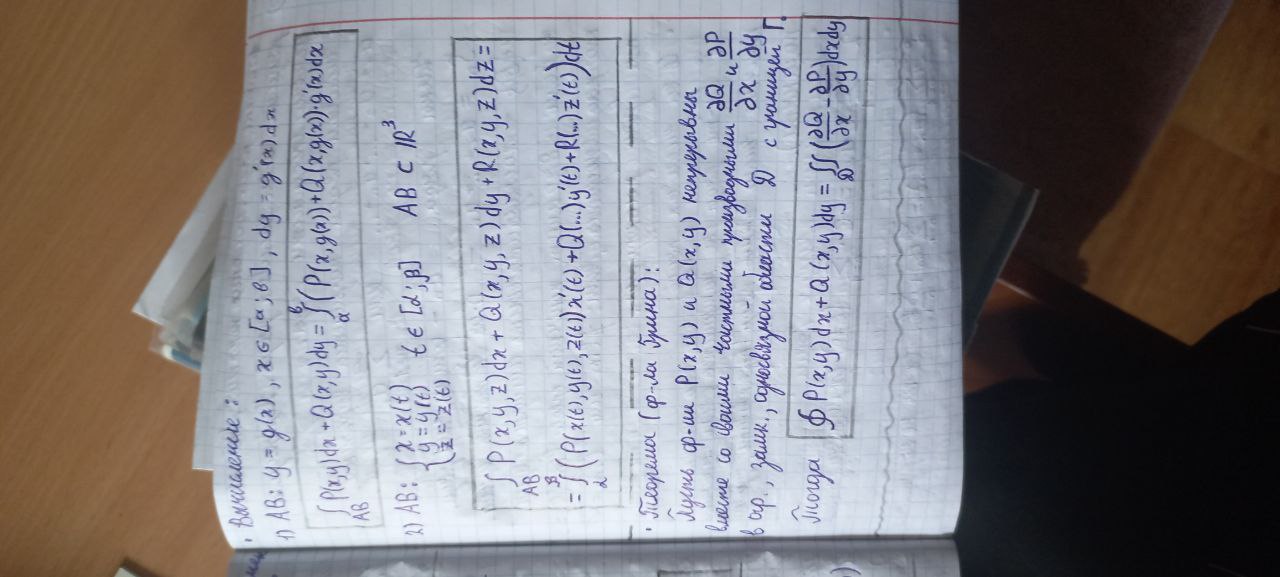 · Вычисление:
1) AB: y = g(x), x ∈ [a; b], dy = g'(x)dx
∫_{AB} P(x,y)dx + Q(x,y)dy = ∫_a^b (P(x,g(x)) + Q(x,g(x))·g'(x)dx
2) AB: { x = x(t) y = y(t) z = z(t) t ∈ [α; β] AB ⊂ ℝ³
∫_{AB} P(x,y,z)dx + Q(x,y,z)dy + R(x,y,z)dz =
= ∫_α^β (P(x(t),y(t),z(t))x'(t) + Q(...)y'(t) + R(...)z'(t))dt
· Теорема (ф-ла Грина):
Пусть ф-ии P(x,y) и Q(x,y) непрерывны
вместе со своими частными производными ∂Q/∂x и ∂P/∂y
в огр., замк., односвязной области D с границей Γ.
Тогда ∮ P(x,y)dx + Q(x,y)dy = ∬_D (∂Q/∂x - ∂P/∂y)dxdy